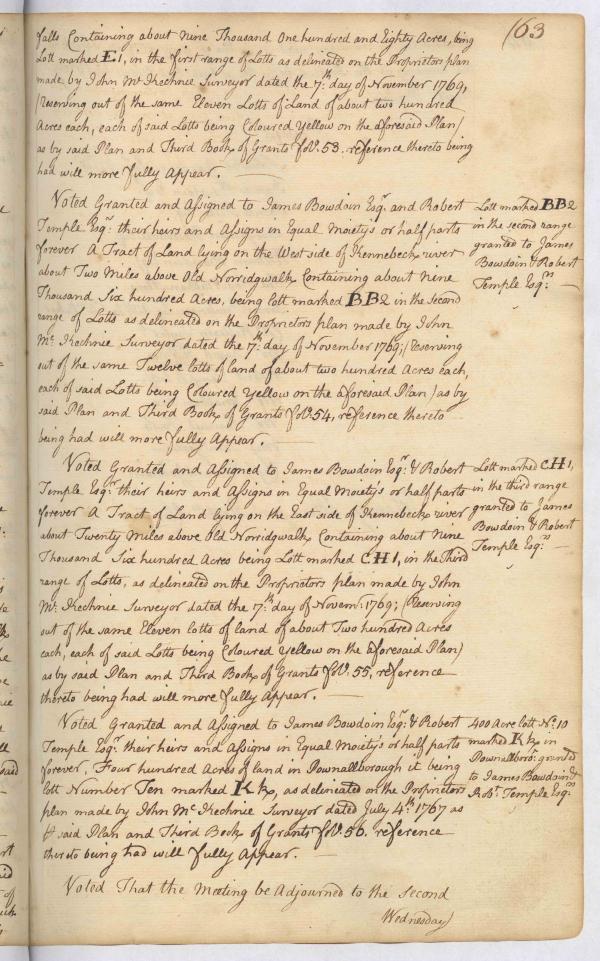 163
falls Containing about Nine Thousand One hundred and Eighty Acres, being
Lott marked E1, in the first range of Lotts as delineated on the Proprietors plan
made by John Mc. Kechnie Surveyor dated the 7th. day of November 1769,
(Reserving out of the same Eleven Lotts of Land of about two hundred
Acres each, each of said Lotts being Coloured Yellow on the aforesaid Plan)
as by said Plan and Third Book of Grants fol. 53. reference thereto being
had will more fully Appear. —
Voted Granted and Assigned to James Bowdoin Esqr. and Robert
Temple Esqr. their heirs and Assigns in Equal Moiety's or half parts
forever A Tract of Land lying on the West side of Kennebeck river
about Two Miles above Old Norridgwalk Containing about Nine
Thousand Six hundred Acres, being lott marked BB2 in the Second
range of Lotts as delineated on the Proprietors plan made by John
Mc. Kechnie Surveyor dated the 7th. day of November 1769; (Reserving
out of the same Twelve lotts of land of about two hundred Acres each,
each of said Lotts being Coloured Yellow on the aforesaid Plan) as by
said Plan and Third Book of Grants fol. 54, reference thereto
being had will more fully Appear. —
Lott marked BB2
in the second range
granted to James
Bowdoin & Robert
Temple Esqrs. —
Voted Granted and Assigned to James Bowdoin Esqr. & Robert
Temple Esqr. their heirs and Assigns in Equal Moiety's or half parts
forever A Tract of Land lying on the East side of Kennebeck river
about Twenty Miles above Old Norridgwalk Containing about Nine
Thousand Six hundred Acres being Lott marked CH1, in the Third
range of Lotts, as delineated on the Proprietors plan made by John
Mc. Kechnie Surveyor dated the 7th. day of Novemr. 1769; (Reserving
out of the same Eleven lotts of land of about Two hundred Acres
each, each of said Lotts being Coloured Yellow on the aforesaid Plan)
as by said Plan and Third Book of Grants fol. 55, reference
thereto being had will more fully Appear. —
Lott marked CH1,
in the third range
granted to James
Bowdoin & Robert
Temple Esqrs. —
Voted Granted and Assigned to James Bowdoin Esqr. & Robert
Temple Esqr. their heirs and Assigns in Equal Moiety's or half parts
forever, Four hundred Acres of land in Pownallborough it being
lott Number Ten marked Kk, as delineated on the Proprietors
plan made by John Mc. Kechnie Surveyor dated July 4th. 1767 as
& said Plan and Third Book of Grants fol. 56. reference
thereto being had will fully Appear. —
400 Acre lott No. 10
marked Kk in
Pownallboro'. granted
to James Bowdoin &
Robt. Temple Esqrs.
Voted That the Meeting be Adjourned to the Second
Wednesday)